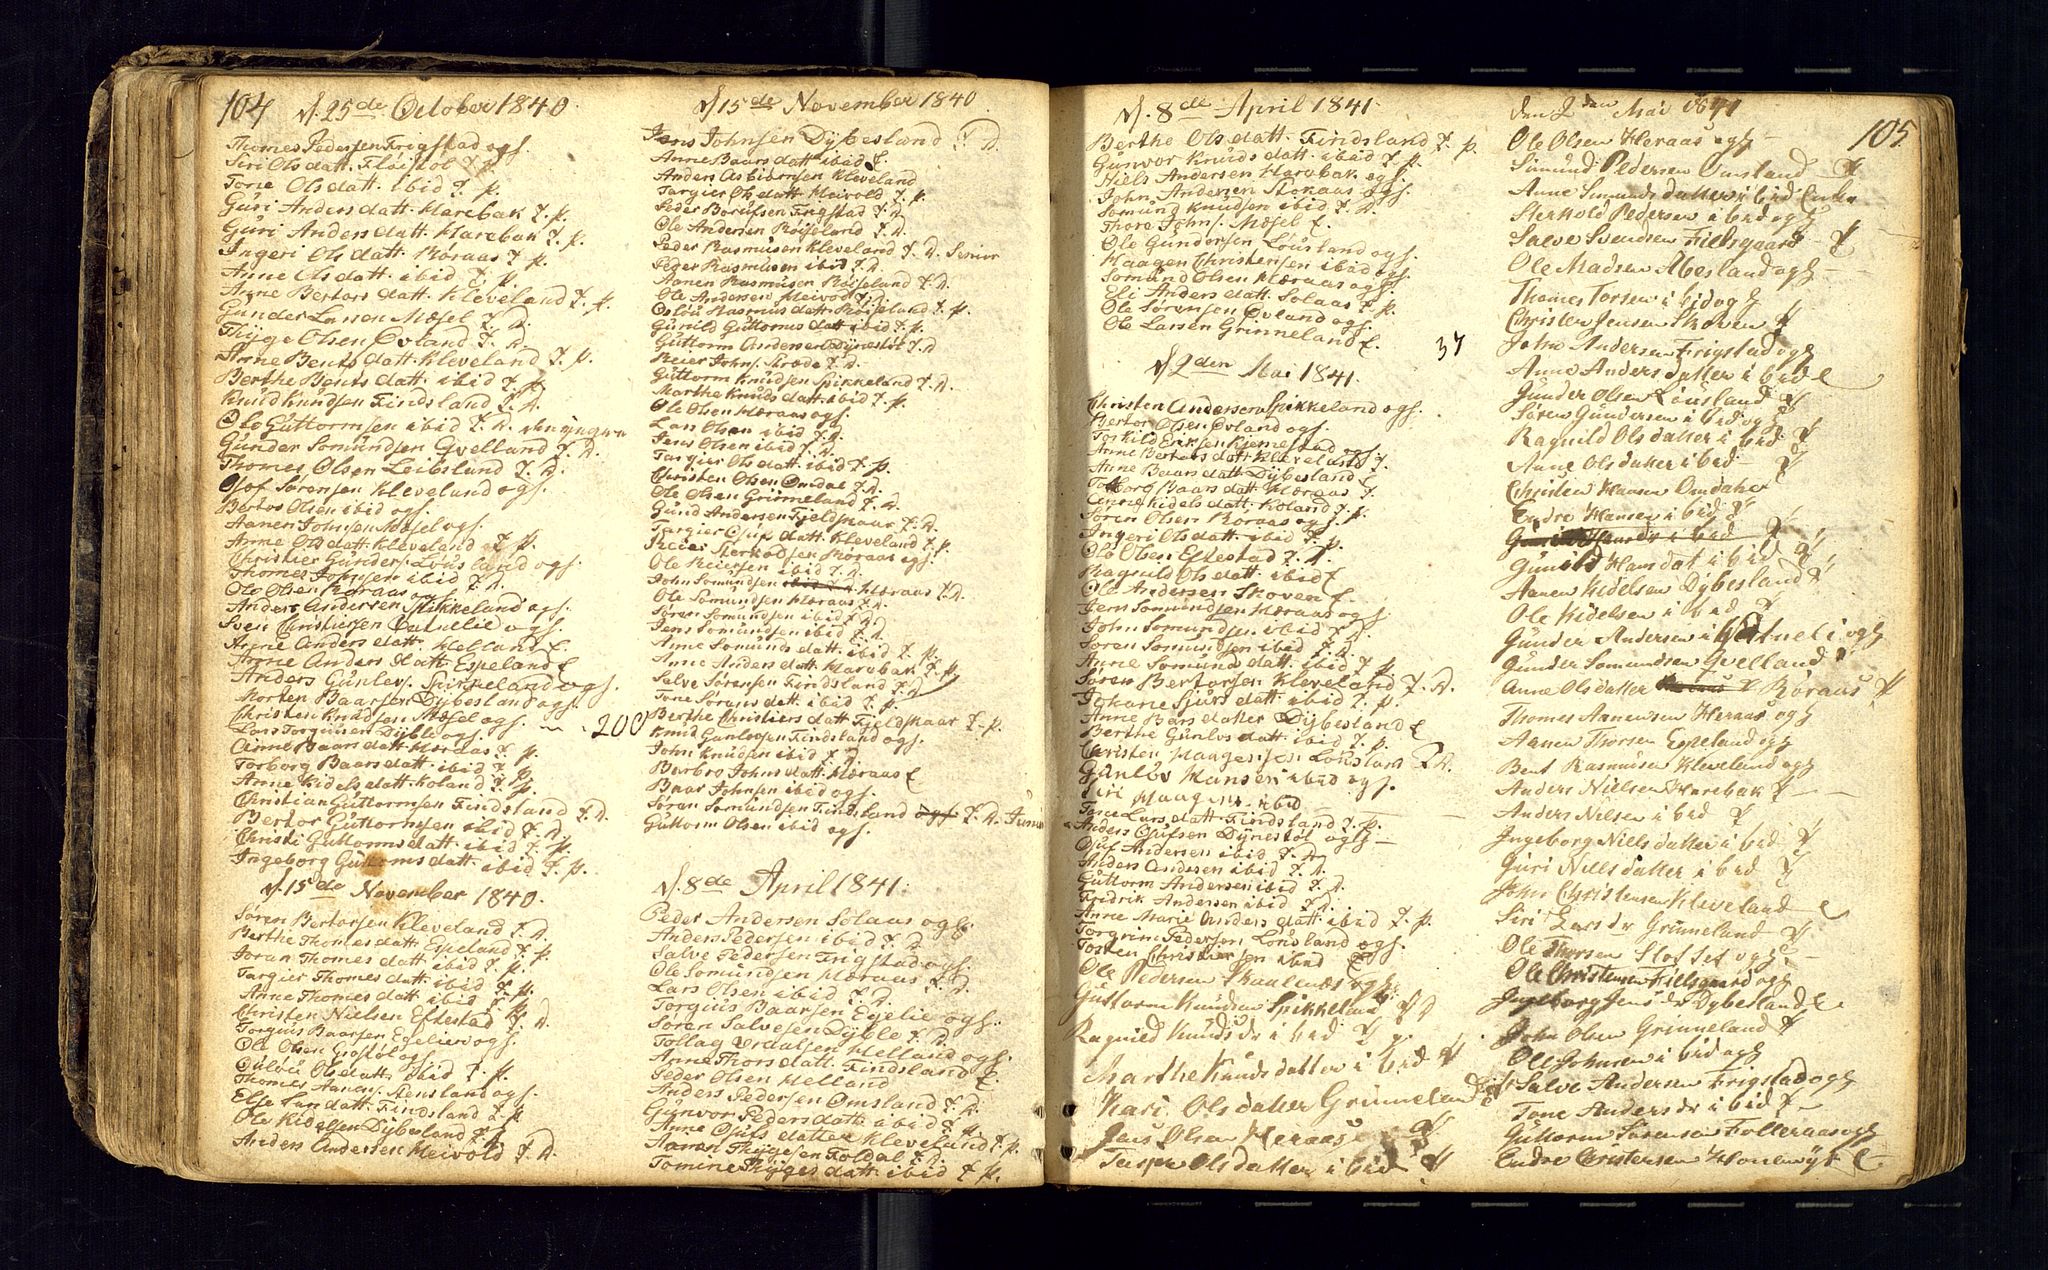 104
d. 25de October 1840.
Thomes Pedersen Frigstad ogs.
Siri Olsdatt. Fløistøl F. p.
Tone Olsdatt. ibid F. p.
Guri Andersdatt. Harebak F. p.
Guri Andersdatt. Harebak F. p.
Ingeri Olsdatt. Røraas F. p.
Anne Olsdatt. ibid F. p.
Anne Bertorsdatt. Kleveland F. p.
Gunder Larsen Mæsel F. D.
Thyge Olsen Øvland F. D.
Anne Bentsdatt. Kleveland F. p.
Berthe Bentsdatt. ibid F. p.
Knud Knudsen Findsland F. D.
Ole Guttormsen ibid F. D. den yngre
Gunder Somundsen Qvelland F. D.
Thomes Olsen Leibsland F. D.
Olof Sørensen Kleveland ogs.
Bertor Olsen ibid ogs.
Aanen Johnsen Mæsel ogs.
Anne Olsdatt. Kleveland F. p.
Christier Gunders. Løusland ogs.
Thomes Johnsen ibid F. D.
Ole Olsen Røraas ogs.
Anders Andersen Spikkeland ogs.
Sven Christensen ogs.
Anne Andersdatt. Helland E
Anne Andersdatt. Espeland E
Anders Gunlevs. Spikkeland ogs.
Morten Baarsen Dybesland ogs.
Christen Knudsen Mæsel ogs.
Lars Torguisen Dyble ogs. 200
Anne Baarsdatt. Høraas F. p.
Torborg Baarsdatt. ibid F. p.
Anne Kidelsdatt. Koland F. p.
Christian Guttormsen Findsland F. D.
Bertor Guttormsen ibid F. D.
Christi Guttormsdatt. ibid F. p.
Ingeborg Guttormsdatt. ibid F. p.
d. 15de November 1840.
Søren Bertorsen Kleveland F. D.
Berthe Thomesdatt. Espeland F. p.
Joran Thomesdatt. ibid F. p.
Targier Thomesdatt. ibid F. p.
Anne Thomesdatt. ibid F. p.
Christen Nielsen Eftestad F. D.
Torguus Baarsen Egelier ogs.
Ole Olsen Grostøl ogs.
Osløu Olsdatt. ibid F. p.
Thomes Aanens. Stensland ogs.
Else Larsdatt. Findsland F. p.
Ole Kidelsen Dybesland F. D.
Anders Andersen Heivold F. D.
d. 15de November 1840
Jens Johnsen Dybesland F. D.
Anne Baarsdatt ibid E
Anders Asbiørnsen Kleveland
Targier Olsdatt. Heivold F. p.
Peder Borufsen Frigstad F. D.
Ole Andersen Røiseland F. D.
Peder Rasmusen Kleveland F. D. Senior
Peder Rasmusen ibid F. D.
Aanen Rasmusen Røiseland F. D.
Ole Andersen Heivold F. D.
Osløu Rasmusdatt Røiseland F. p.
Gunild Guttormsdatt ibid F. p.
Guttorm Andersen Dynestøl F. D
Reier Johns. Skræde F. D.
Guttorm Knudsen Spikkeland F. D.
Marthe Knudsdatt. ibid F. p.
Ole Olsen Høraas ogs.
Lars Olsen ibid F. D.
Jens Olsen ibid F. D.
Targier Olsdatt. ibid F. p.
Christen Olsen Omdal F. D.
Ole Olsen Grimeland F. D.
Gund Andersen Fjeldskaar F. D.
Targier Osufsdatt. Kleveland F. p.
Reier Sterkodsen Røraas ogs.
Ole Reiersen ibid F. D.
John Somundsen Høraas F. D.
Ole Somundsen Høraas F. D.
Søren Somundsen ibid F. D.
Jens Somundsen ibid F. D.
Anne Somundsdatt ibid F. p.
Anne Andersdatt Harebak F. p.
Salve Sørensen Findsland F. D.
Tone Sørensdatt. ibid F. p.
Berthe Christiersdatt Fjeldskaar F. p.
Knud Gunlevsen Findsland ogs.
John Knudsen ibid F. D.
Barbro Johnsdatt. Høraas E.
Baar Johnsen ibid ogs.
Søren Somundsen Findsland ogs F. D. Junior
Guttorm Olsen ibid ogs.
d. 8de April 1841.
Peder Andersen Solaas ogs.
Anders Pedersen ibid F. D.
Salve Pedersen Frigstad ogs.
Ole Somundsen Høraas F. D.
Lars Olsen ibid F. D.
Torguus Baarsen Egelie ogs.
Søren Salvesen Dyble F. D.
Tollag Uraalsen Helland ogs.
Anne Thorsdatt. Findsland E.
Peder Olsen Helland
Anders Pedersen Omsland F. D.
Gunvor Pedersdatt. ibid F. p.
Anne Osufsdatter Kleveland F. p.
Aanen Thygesen Foldal F. D.
Tomine Thygesdatt ibid F. p.
d. 8de April 1841.
Berthe Olsdatt. Findsland F. p.
Gunvor Knudsdatt. ibid F. p.
Niels Andersen Harebak ogs.
John Andersen Stokaas ogs.
Somund Knudsen ibid F. D.
Thore Johns. Mæsel E.
Ole Gundersen Løusland ogs.
Haagen Christensen ibid ogs.
Somund Olsen Høraas ogs.
Eli Andersdatt. Solaas F. p.
Ole Sørensen Øvland ogs.
Ole Larsen Grinneland E. 37
d. 2den Mai 1841.
Christen Andersen Spikkeland ogs.
Bertor Olsen Øvland ogs.
Torkild Eriksen Kjerrestad ogs.
Anne Bertorsdatt. Kleveland F.
Anne Baarsdatt Dybesland E
Torborg Baarsdatt. Høraas F.
Anne Kidelsdatt. Koland F. p.
Søren Olsen Røraas ogs.
Ingeri Olsdatt. ibid F. p.
Ole Olsen Eftestad F. D.
Ragnild Olsdatt. ibid E
Ole Andersen Skoven E
Jens Somundsen Høraas ogs.
John Somundsen ibid F. D.
Søren Somundsen ibid F. D.
Anne Somundsdatt. ibid F. p.
Søren Bertorsen Kleveland F. D.
Johane Sjursdatt. ibid F. p.
Anne Barsdatter Dybesland E
Berthe Gunlevsdatt. ibid F. p.
Christen Haagensen Løusland F. D.
Gunløv Hansen ibid ogs.
Siri Haagens. ibid
Tone Larsdatt. Findsland F. p.
Anders Osufsen Dynestøl ogs
Osuf Andersen ibid F. D.
Anders Andersen ibid F. D.
Guttorm Andersen ibid F. D.
Fredrik Andersen ibid F. D.
Anne Marie Andersdatt. ibid F. p.
Torgrim Pedersen Løusland ogs.
Tosten Christiersen ibid E
Ole Pedersen Skaalenæs ogs.
Guttorm Knudsen Spikkeland F D
Ragnild Knudsdr ibid F p.
Marthe Knudsdatter ibid F
Kari Olsdatter Grinneland
Jens Olsen Heraas F
Targier Olsdatter ibid F
105
den 2den Mai 1841
Ole Olsen Heraas ogs
Simund Pedersen Omsland F
Anne Simundsdatter ibid Enke
Sterkold Pedersen ibid ogs
Salve Svendsen Fielsgaard F
Ole Madsen Abesland ogs
Thomes Torsen ibid ogs
Christen Jensen Skoven F
John Andersen Frigstad ogs
Anne Andersdatter ibid E
Gunder Olsen Løusland F
Søren Gundersen ibid ogs
Ragnild Olsdatter ibid F
Anne Olsdatter ibid F
Christen Hansen Omdal F
Endre Hansen ibid F
Gunild Hansdr ibid F
Gunild Hansdat ibid F
Aanen Kidelsen Dybesland F
Ole Kidelsen ibid F
Gunder Andersen ogs
Gunder Somundsen Qvelland F
Anne Olsdatter Røraas F
Thomes Aanensen Heraas ogs
Aanen Thorsen Espeland ogs
Bent Rasmusen Kleveland ogs
Anders Nielsen Harebak F
Anders Nilsen ibid F
Ingeborg Nielsdatter ibid F
Guri Nielsdatter ibid F
John Christensen Kleveland E
Siri Larsdr Grinneland F
Ole Thorsen ogs
Ole Christensen Fielsgaard ogs
Ingeborg Jensdr Dybesland E
John Olsen Grinneland F
Ole Johnsen ibid ogs
Salve Andersen Frigstad ogs
Tone Andersdr ibid F
Guttorm Sørensen Folleraas ogs
Endre Christersen E